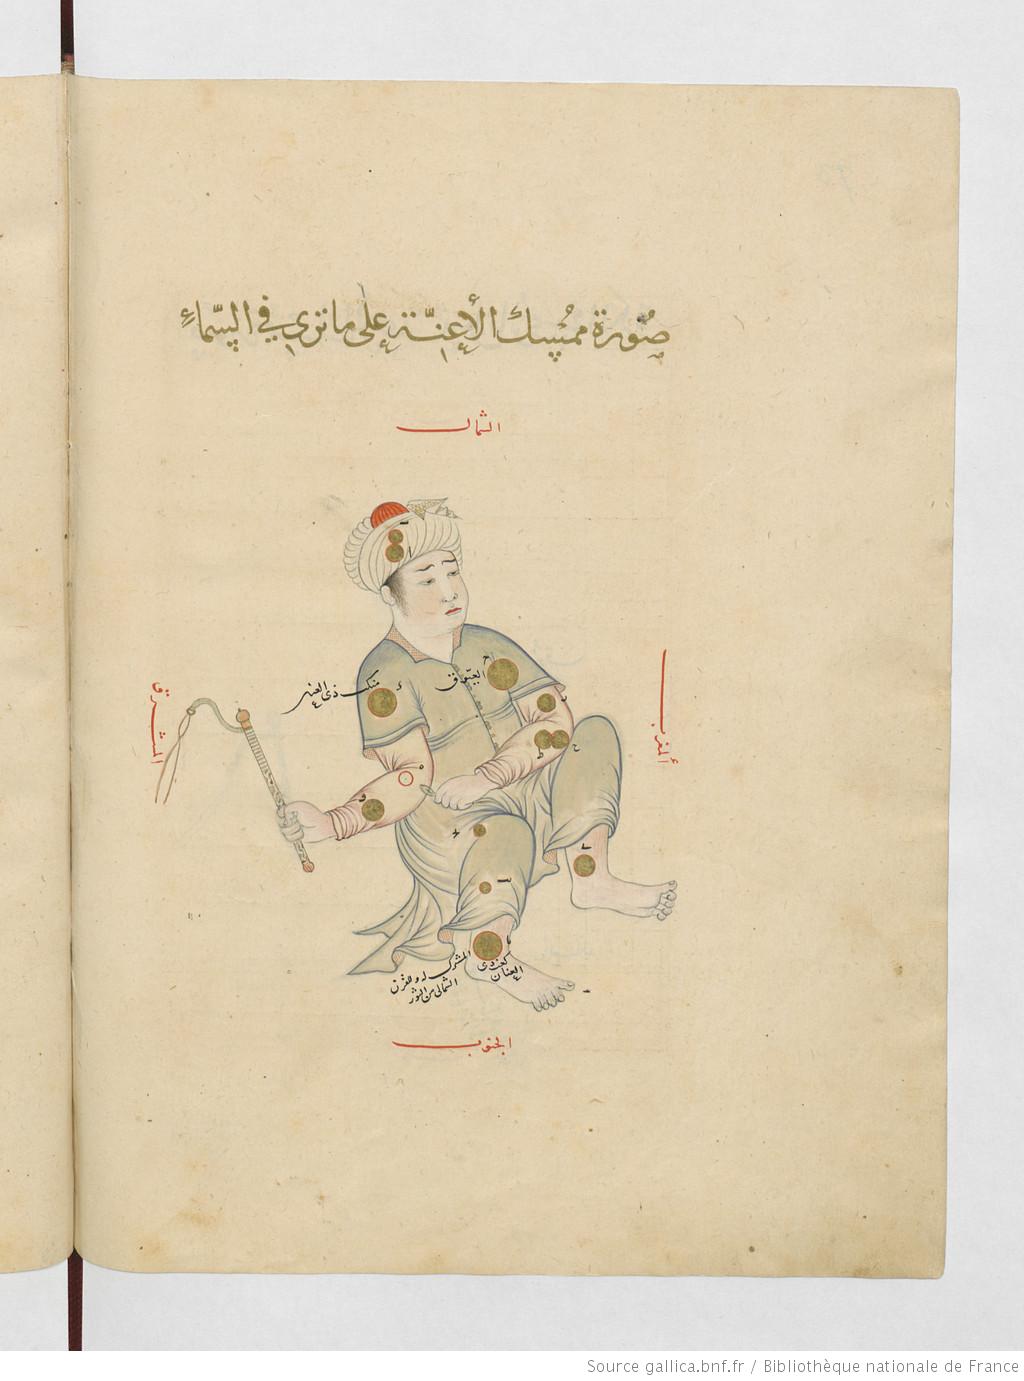 صُورة ممْسِك الأعِنّة على ما ترى في السّماءِ
الشمال
منكب ذي العنان
العيّوق
المشرق
المغرب
كعب ذي
العنان
المشترك له وللقرن
الشمالي من الثور
الجنوب
Source gallica.bnf.fr / Bibliothèque nationale de France